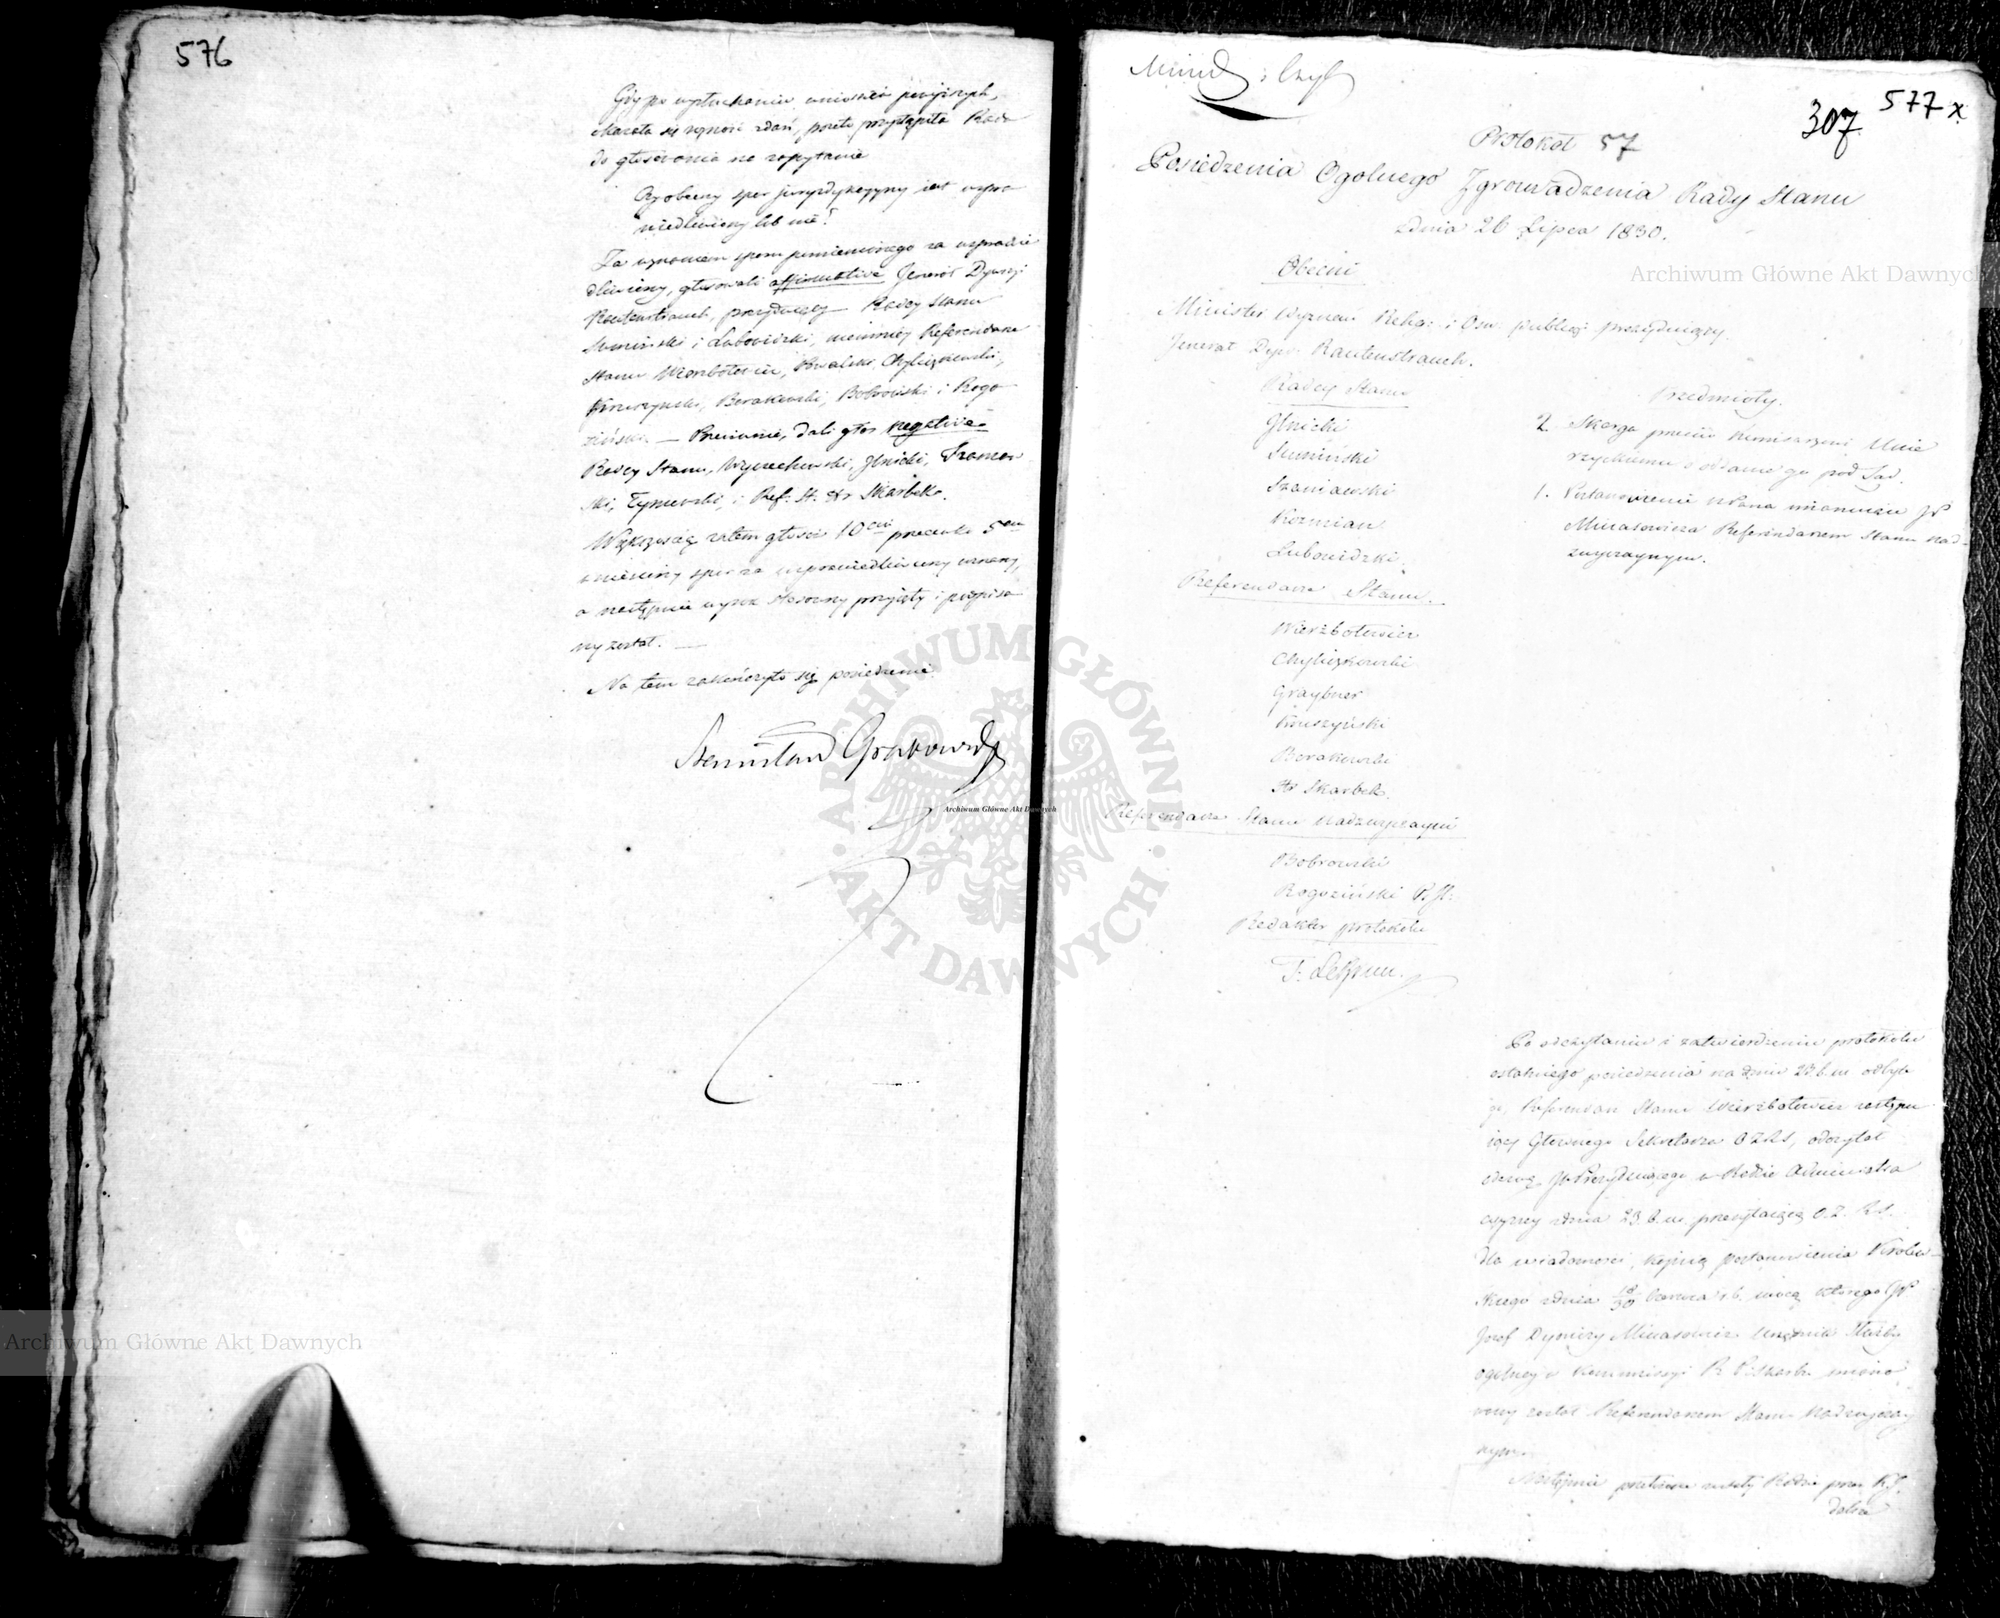 576
Gdy po wysłuchaniu wniosków powyższych,
okazała się różność zdań, przeto przystąpiła Rada
do głosowania na zapytanie
Czy obecny spór juryzdykcyjny jest uspra-
wiedliwiony lub nie?
Za uznaniem sporu pomienionego za usprawie
dliwiony, głosowali affirmative Jenerał Dywizyi
Rautenstrauch, Radcy Stanu
Sumiński i Lubowidzki, niemniej Referendarze
Stanu Wierzbołowicz, Kowalski, Chyliczkowski,
Kruszyński, Borakowski, Bobrowski i Rogo
ziński. — Przeciwnie, dali głos negative
Radcy Stanu, Wyczechowski, Jlnicki,
ski, Tymowski, i Ref. St. Hr Skarbek.
Większością zatem głosów 10ciu przeciwko 5ciu
wniesiony spór za usprawiedliwiony uznany,
a następnie wyrok stosowny przyjęty i podpisa
ny został. —
Na tem zakończyło się posiedzenie.
Stanisław Grabowski
577 x
307
Protokół 57
Posiedzenia Ogolnego Zgromadzenia Rady Stanu
dnia 26 Lipca 1830.
Obecni
Minister Wyznań Relig: i Osw. publicz: prezyduiący.
Jenerał Dyw: Rautenstrauch.
Radcy Stanu
Jlnicki
Sumiński
Szaniawski
Kozmian
Lubowidzki.
Referendarze Stanu.
Wierzbołowicz
Chyliczkowski
Graybner
Kruszyński
Borakowski
Hr Skarbek.
Referendarze Stanu Nadzwyczayni
Bobrowski
Rogoziński R. St:
Redaktor protokołu
T. LeBrun.
Przedmioty.
2. Skarga przeciw Kommissarzowi
o oddanie go pod Sąd.
1. Postanowienie Króla mianujące JP
Minasowicza Referendarzem Stanu nad-
zwyczaynym.
Po odczytaniu i zatwierdzeniu protokołu
ostatniego posiedzenia na dniu 23 b. m. odbyte
go, Referendarz Stanu Wierzbołowicz zastępu
iący Głównego Sekretarza OZRS, odczytał
odezwę JW Prezyduiącego w Radzie Administra
cyyney z dnia 23 b. m. przesyłaiącą O. Z. R.S.
dla wiadomości, kopiią postanowienia Królew-
skiego z dnia 18/30 Czerwca r. b. mocą którego JP
Józef Dyonizy Minasowicz Urzędnik Służby
ogólney w Kommissyi R. P. i Skarbu miano
wany został Referendarzem Stanu Nadzwyczay
nym.
Następnie Radzie przez
dalsze